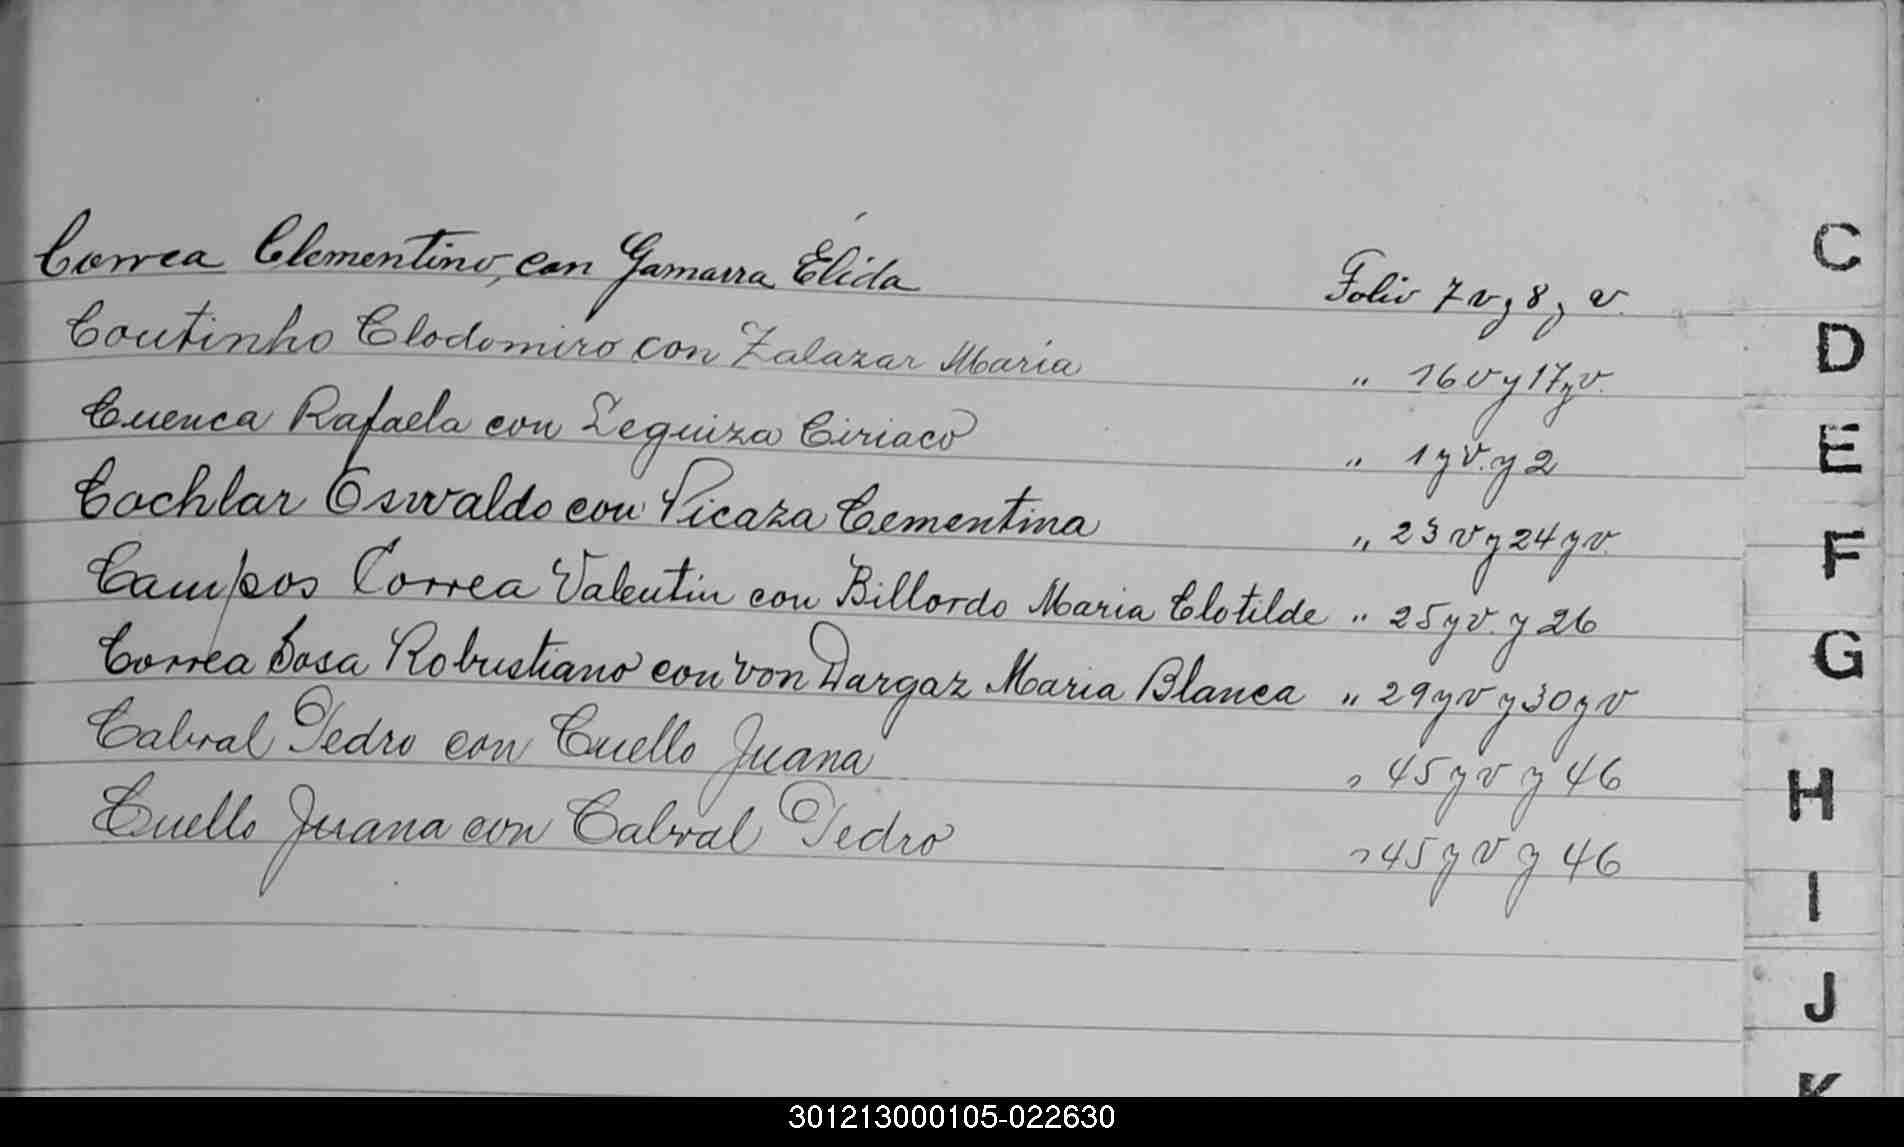 Correa Clementino, con Gamarra Élida Folio 7 v y 8 y v.
Coutinho Clodomiro con Zalazar María " 16 v y 17 y v.
Cuenca Rafaela con Leguiza Ciriaco " 1 y v. y 2
Cochlar Oswaldo con Picaza Cementina " 23 v y 24 y v.
Campos Correa Valentin con Billordo Maria Clotilde " 25 y v. y 26
Correa Sosa Robustiano con von Dargaz Maria Blanca " 29 y v y 30 y v
Cabral Pedro con Cuello Juana " 45 y v y 46
Cuello Juana con Cabral Pedro " 45 y v y 46
C
D
E
F
G
H
I
J
K
301213000105-022630